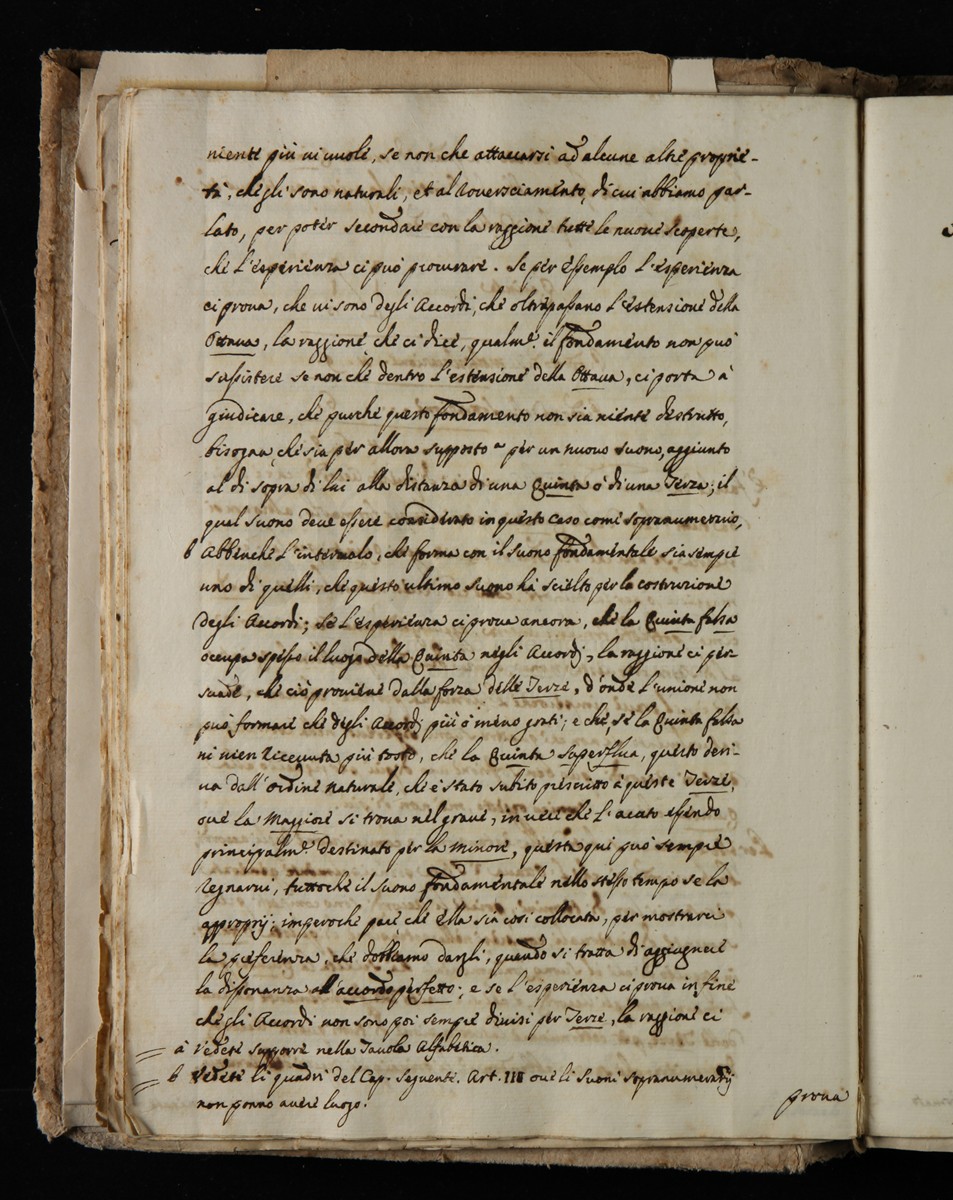 niente più vi vuole, se non che attaccarsi ad alcune altre proprie-
tà, che gli sono naturali, et al Roversciamento, di cui abbiamo par-
lato, per poter secondare con la raggione tutte le nuove scoperte,
che l'esperienza ci può procurare. Se per essemplo l'esperienza
ci prova, che vi sono degli Accordi, che oltrepassano l'estensione della
Ottava, la raggione che ci dice, qualm.e il fondamento non può
sussistere se non che dentro l'estensione della Ottava, ci porta à
giudicare, che purché questo fondamento non sia niente destrutto,
bisogna che sia per allora supposto a per un nuovo suono, aggiunto
al di sopra di lui alla distanza di una Quinta ò di una Terza; il
qual suono deve essere considerato in questo caso come sopranumerario,
b Abbenché l'intervalo, che forma con il suono fondamentale sia sempre
uno di quelli, che questo ultimo suono hà scielto per la costruzione
degli Accordi; se l'esperienza ci prova ancora, che la Quinta falsa
occupa spesso il luogo della Quinta negli Accordi, la raggione ci per-
suade, che ciò proviene dalla forza delle Terze, d'onde l'unione non
può formare che degli Accordi più ò meno grati; e che se la Quinta falsa
vi vien ricevuta più tosto, che la Quinta superflua, questo deri-
va dall'ordine naturale, che è stato subito prescritto à queste Terze,
ove la Maggiore si trova nel grave, in vece che l'acuto essendo
principalm.e destinato per la minore, questa qui può sempre
regnarvi, tuttoche il suono fondamentale nello stesso tempo se la
approprij; imperoche pare che ella sia così collocata, per mostrarci
la preferenza, che dobbiamo dargli, quando si tratta di aggiugnere
la dissonanza all'accordo perfetto; e se l'esperienza ci prova in fine
che gli Accordi non sono poi sempre divisi per Terze, la raggione ci
a Vedete supporre nella Tavola Alfabetica.
b Vedete li quadri del Cap. seguente. Art. III ove li suoni sopranumerarij
non ponno avere luogo.
prova